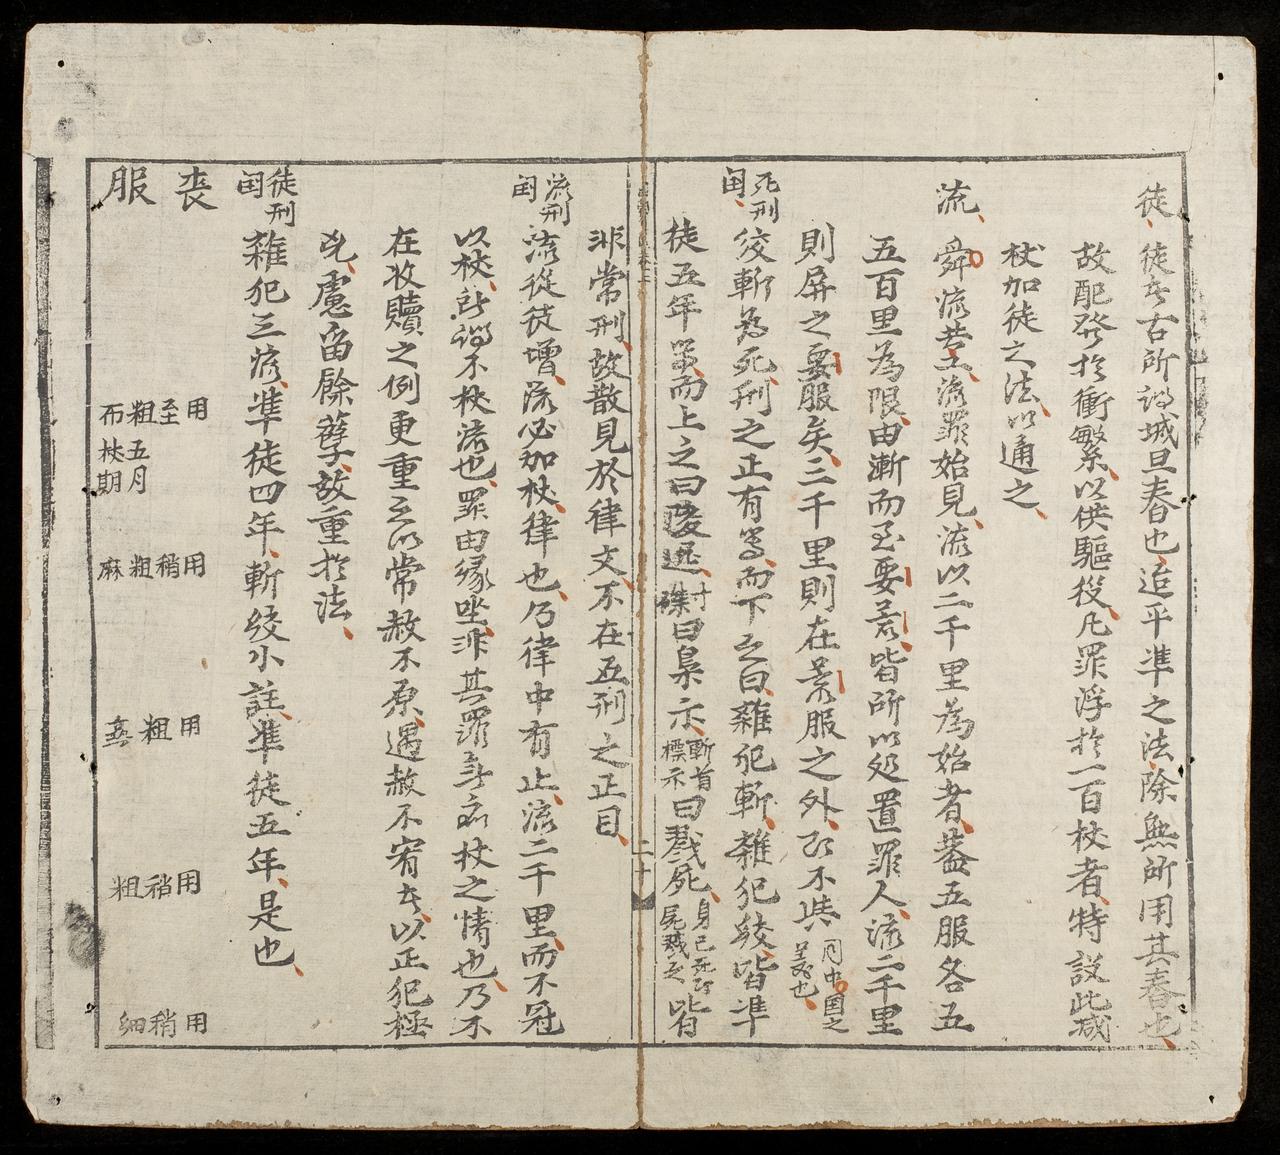 徒、徒者古所謂城旦舂也追平準之法除無所用其舂也、
故配発於衝繁、以供驅役、凡罪浮於一百杖者、特設此減
杖加徒之法、以通之、
流、舜流共工、流罪始見、流以二千里為始者、蓋五服各五
五百里為限、由漸而至要荒、皆所以処置罪人、流二千里
則屏之要服矣、三千里則在荒服之外、即不與同中国之義也、
死刑閏、絞斬為死刑之正有等、而下之曰、雜犯斬、雜犯絞、皆準
徒五年等、而上之曰陵遲、寸磔曰梟示、斬首標示曰戮死、身已死即尸戮之皆
非常刑、故散見於律文、不在五刑之正目、
二十
流刑閏流從徒增、流必加杖、律也、乃律中有止、流二千里、而不冠
以杖、所謂不杖流也、罪由緣坐、非其罪等、應杖之情也、乃不
在收贖之例更重之以常赦不原、遇赦不宥者、以正犯極
兇、慮留餘孽、故重於法、
徒刑閏雜犯三流、準徒四年、斬絞小註、準徒五年、是也、
喪服
用至粗布
五月杖期
用稍粗麻
用粗
用稍粗
用稍細